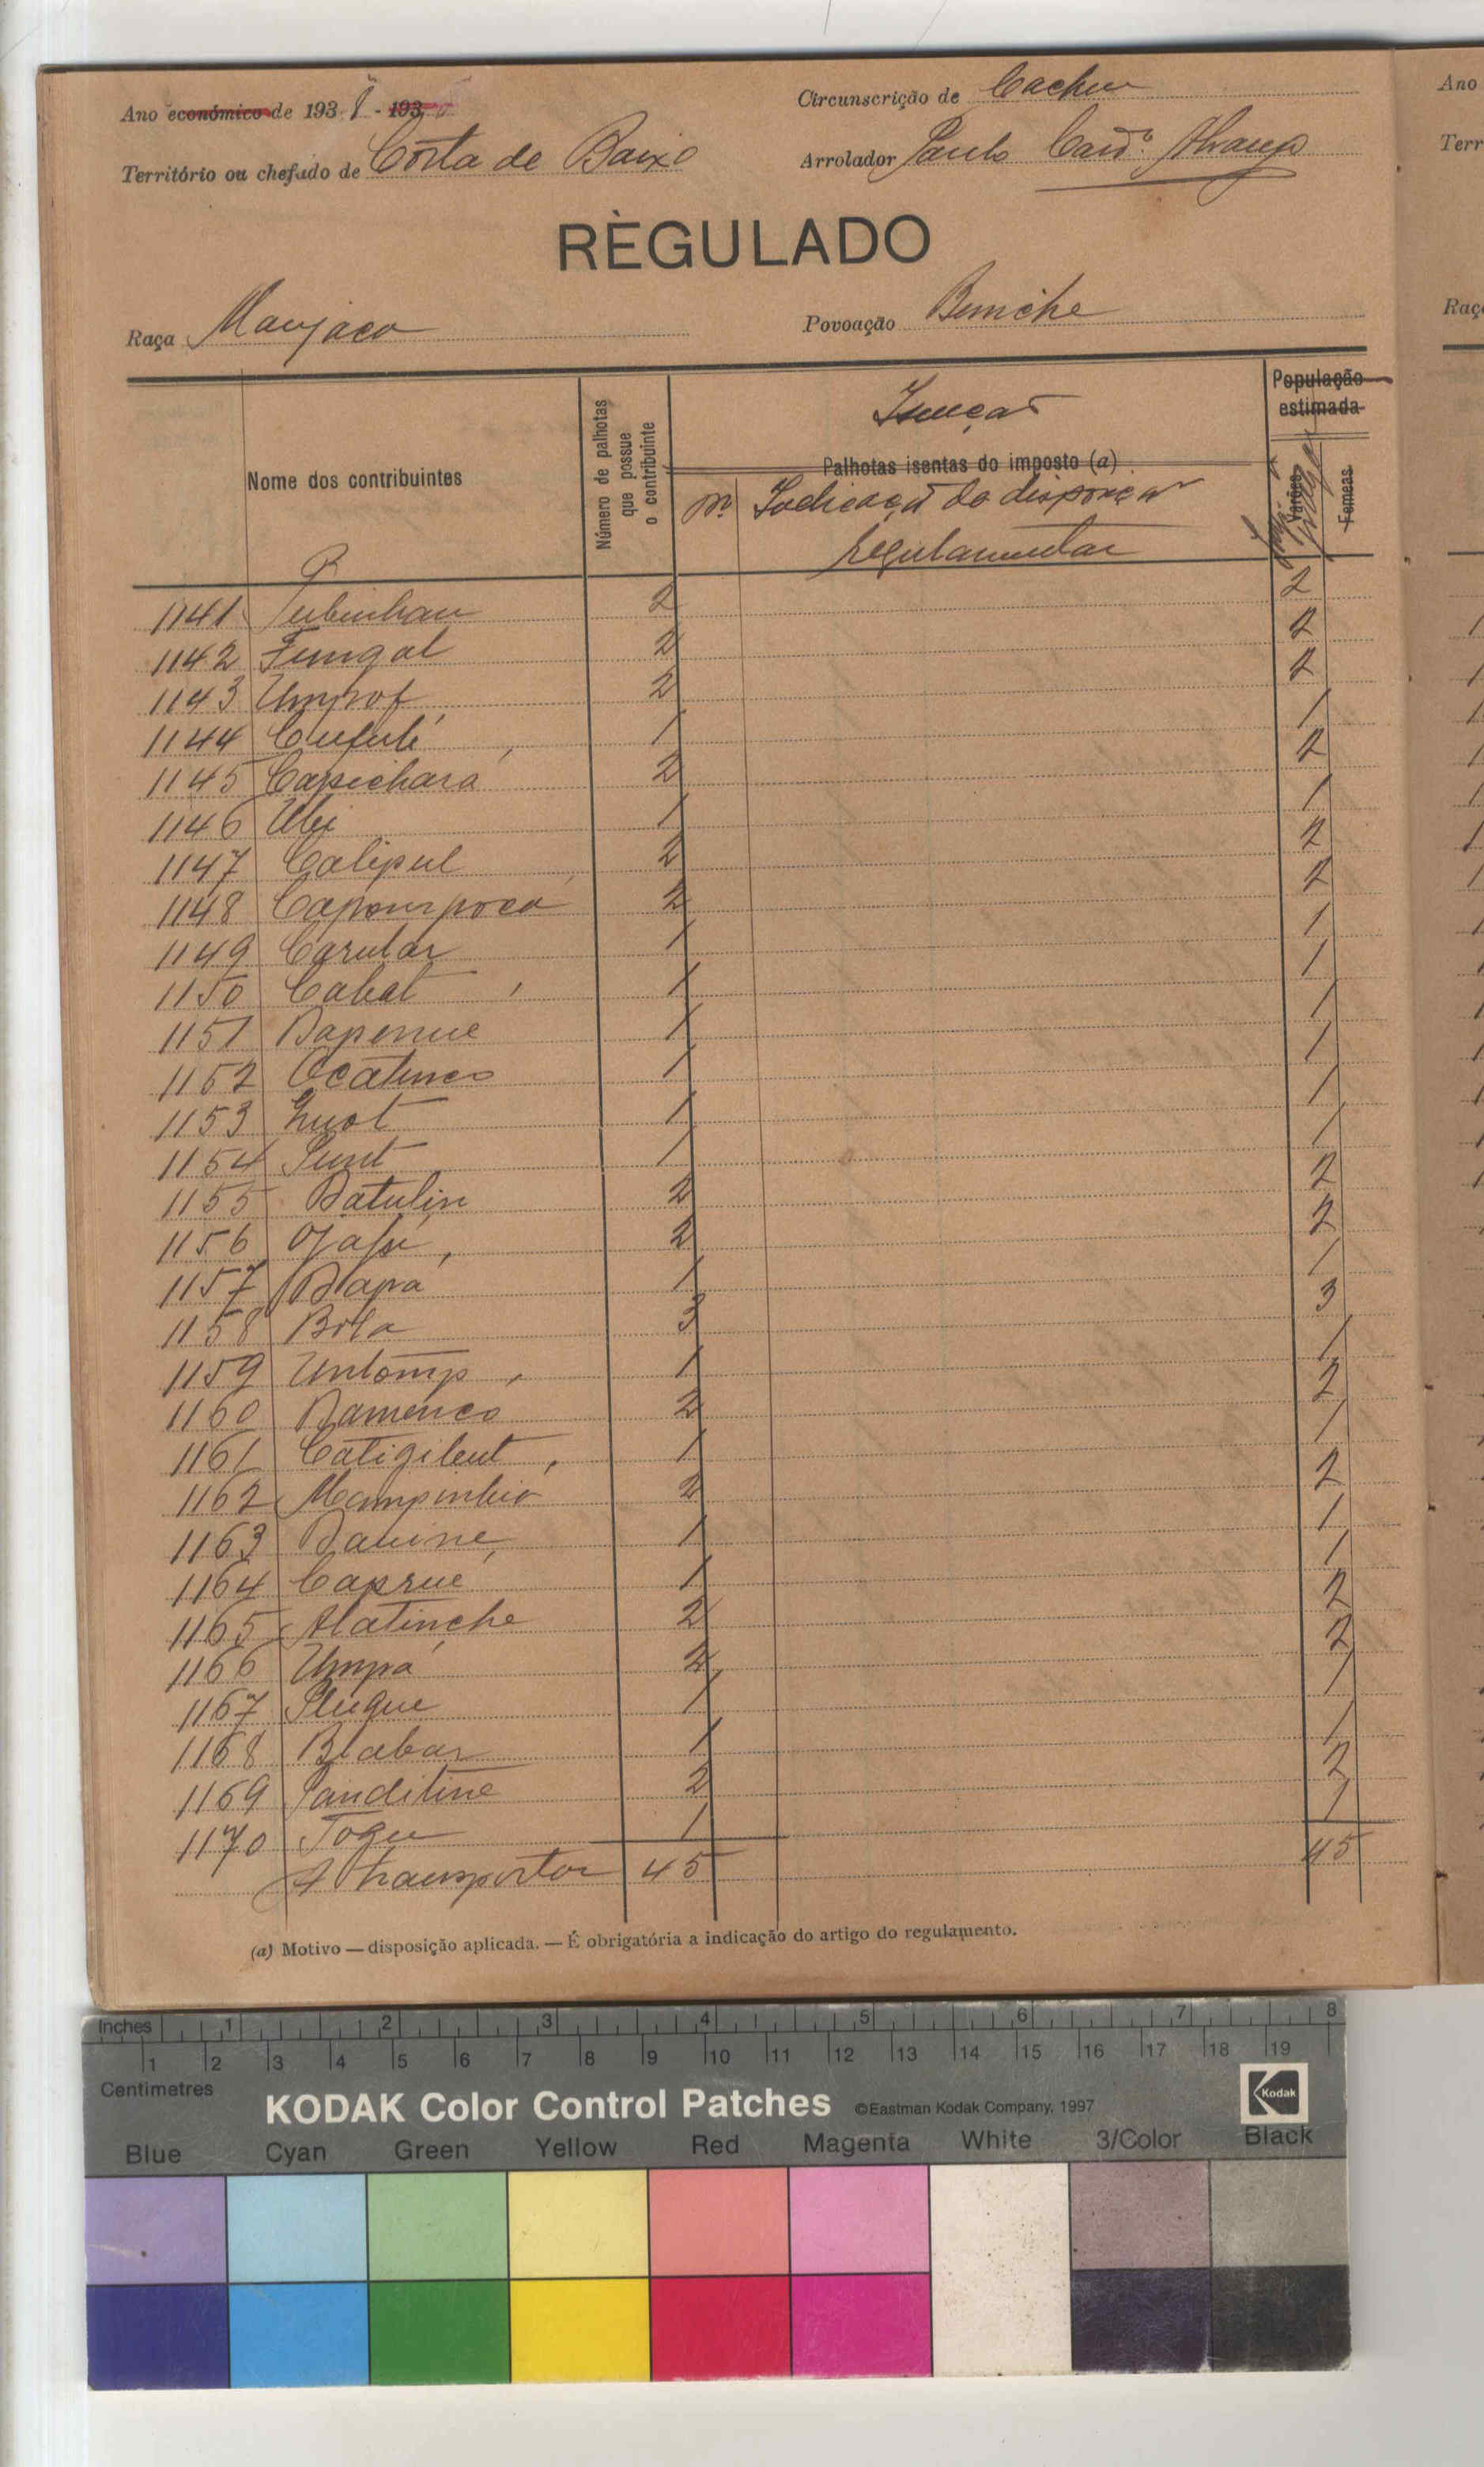 Ano económico de 1938 - 193
Circunscrição de Cacheu
Território ou chefado de Costa de Baixo
Arrolador Paulo
RÈGULADO
Raça Manjaco
Povoação
Nome dos contribuintes
Número de palhotas
que possue
o contribuinte
Isenção
Palhotas isentas do imposto (a)
Nº Indicação da disposição
regulamentar
População
estimada
Varões
Femeas
1141 2 2
1142 Fungal 2 2
1143 Umprof 2 2
1144 Cufulé 1 1
1145 Capichara 2 2
1146 1 1
1147 Calipul 2 2
1148 Capompoca 2 2
1149 Carular 1 1
1150 Cabat 1 1
1151 Dapenue 1 1
1152 Ocatinco 1 1
1153 1 1
1154 1 1
1155 Batulin 2 2
1156 2 2
1157 Bapa 1 1
1158 Bola 3 3
1159 Untomp 1 1
1160 Damenco 2 2
1161 Catigilent 1 1
1162 Mampinhió 2 2
1163 1 1
1164 Caprué 1 1
1165 Alatinche 2 2
1166 Umpá 2 2
1167 1 1
1168 Blabar 1 1
1169 Panditine 2 2
1170 Togu 1 1
A transportar 45 45
(a) Motivo — disposição aplicada. — É obrigatória a indicação do artigo do regulamento.
Ano
Terr
Raç
Inches 1 2 3 4 5 6 7 8
1 2 3 4 5 6 7 8 9 10 11 12 13 14 15 16 17 18 19
Centimetres
KODAK Color Control Patches ©Eastman Kodak Company, 1997 Kodak
Blue Cyan Green Yellow Red Magenta White 3/Color Black